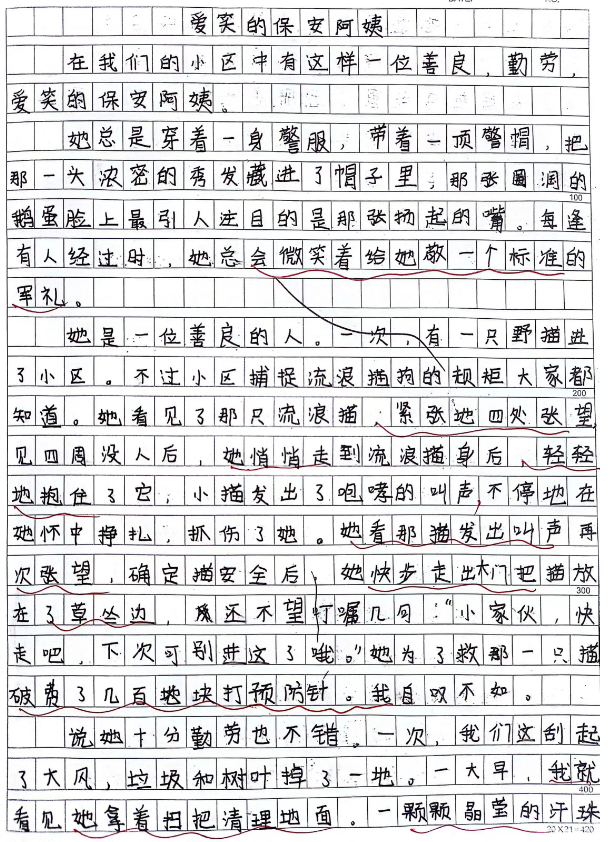 爱笑的保安阿姨
在我们的小区中有这样一位善良,勤劳,
爱笑的保安阿姨。
她总是穿着一身警服,带着一顶警帽,把
那一头浓密的秀发藏进了帽子里,那张圆润的
100
鹅蛋脸上最引人注目的是那张扬起的嘴。每逢
有人经过时,她总会微笑着给她敬一个标准的
军礼。
她是一位善良的人。一次,有一只野猫进
了小区。不过小区捕捉流浪猫狗的规矩大家都
200
知道。她看见了那只流浪猫,紧张地四处张望,
见四周没人后,她悄悄走到流浪猫身后,轻轻
地抱住了它,小猫发出了咆哮的叫声,不停地在
她怀中挣扎,抓伤了她。她看那猫发出叫声再
次张望,确定猫安全后,她快步走出大门把猫放
300
在了草丛边,还不望叮嘱几句:“小家伙,快
走吧,下次可别进这了哦。”她为了救那一只猫
破费了几百地块打预防针。我自叹不如。
说她十分勤劳也不错。一次,我们这刮起
了大风,垃圾和树叶掉了一地。一大早,我就
400
看见她拿着扫把清理地面。一颗颗晶莹的汗珠
20×21=420